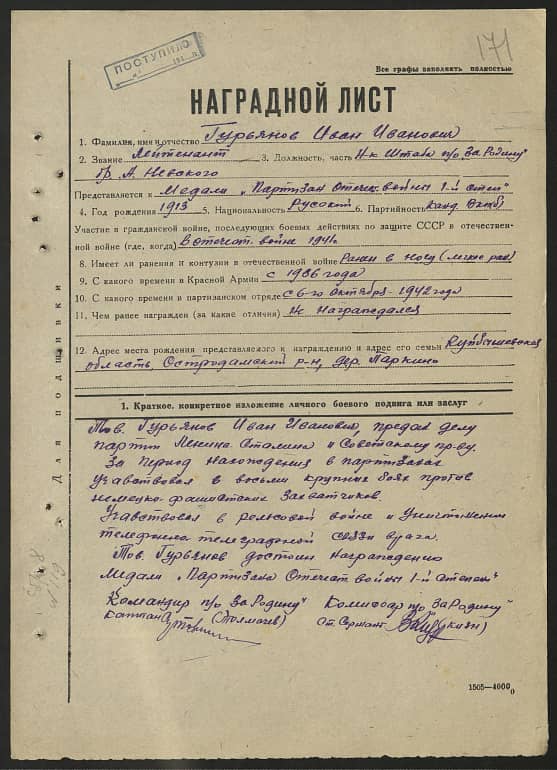 171
ПОСТУПИЛО
Все графы заполнять полностью
НАГРАДНОЙ ЛИСТ
1. Фамилия, имя и отчество Гурьянов Иван Иванович
2. Звание Лейтенант 3. Должность, часть Н-к Штаба п/о „За Родину"
бр. А. Невского
Представляется к Медали „Партизан Отечеств. войны 1-й степ"
4. Год рождения 1913 5. Национальность Русский 6. Партийность Канд. Вкпб)
Участие в гражданской войне, последующих боевых действиях по защите СССР и отечествен-
ной войне (где, когда) В отечест. войне 1941г
8. Имеет ли ранения и контузии в отечественной войне Ранен в ногу (легкие ран)
9. С какого времени в Красной Армии с 1936 года
10. С какого времени в партизанском отряде с 6-го Октября-1942 года
11. Чем ранее награжден (за какие отличия) Не Награждался
12. Адрес места рождения представляемого к награждению и адрес его семьи Куйбышевская
область, р-н, дер. Паркино
Для подшивки
1. Краткое, конкретное изложение личного боевого подвига или заслуг
Тов. Гурьянов Иван Иванович, предан делу
партии Ленина-Сталина и Советскому пр-ву.
За период нахождения в партизанах
учавствовал в восьми крупных боях против
немецко-фашистских захватчиков.
Учавствовал в рельсовой войне и уничтожении
телефонно телеграфной связи врага.
Тов. Гурьянов достоин Награждению
Медали „Партизана Отечест войны 1-й степени"
Командир п/о За Родину" Комиссар п/о За Родину"
Капитан (Толмачев) Ст. Сержант
1505—4000